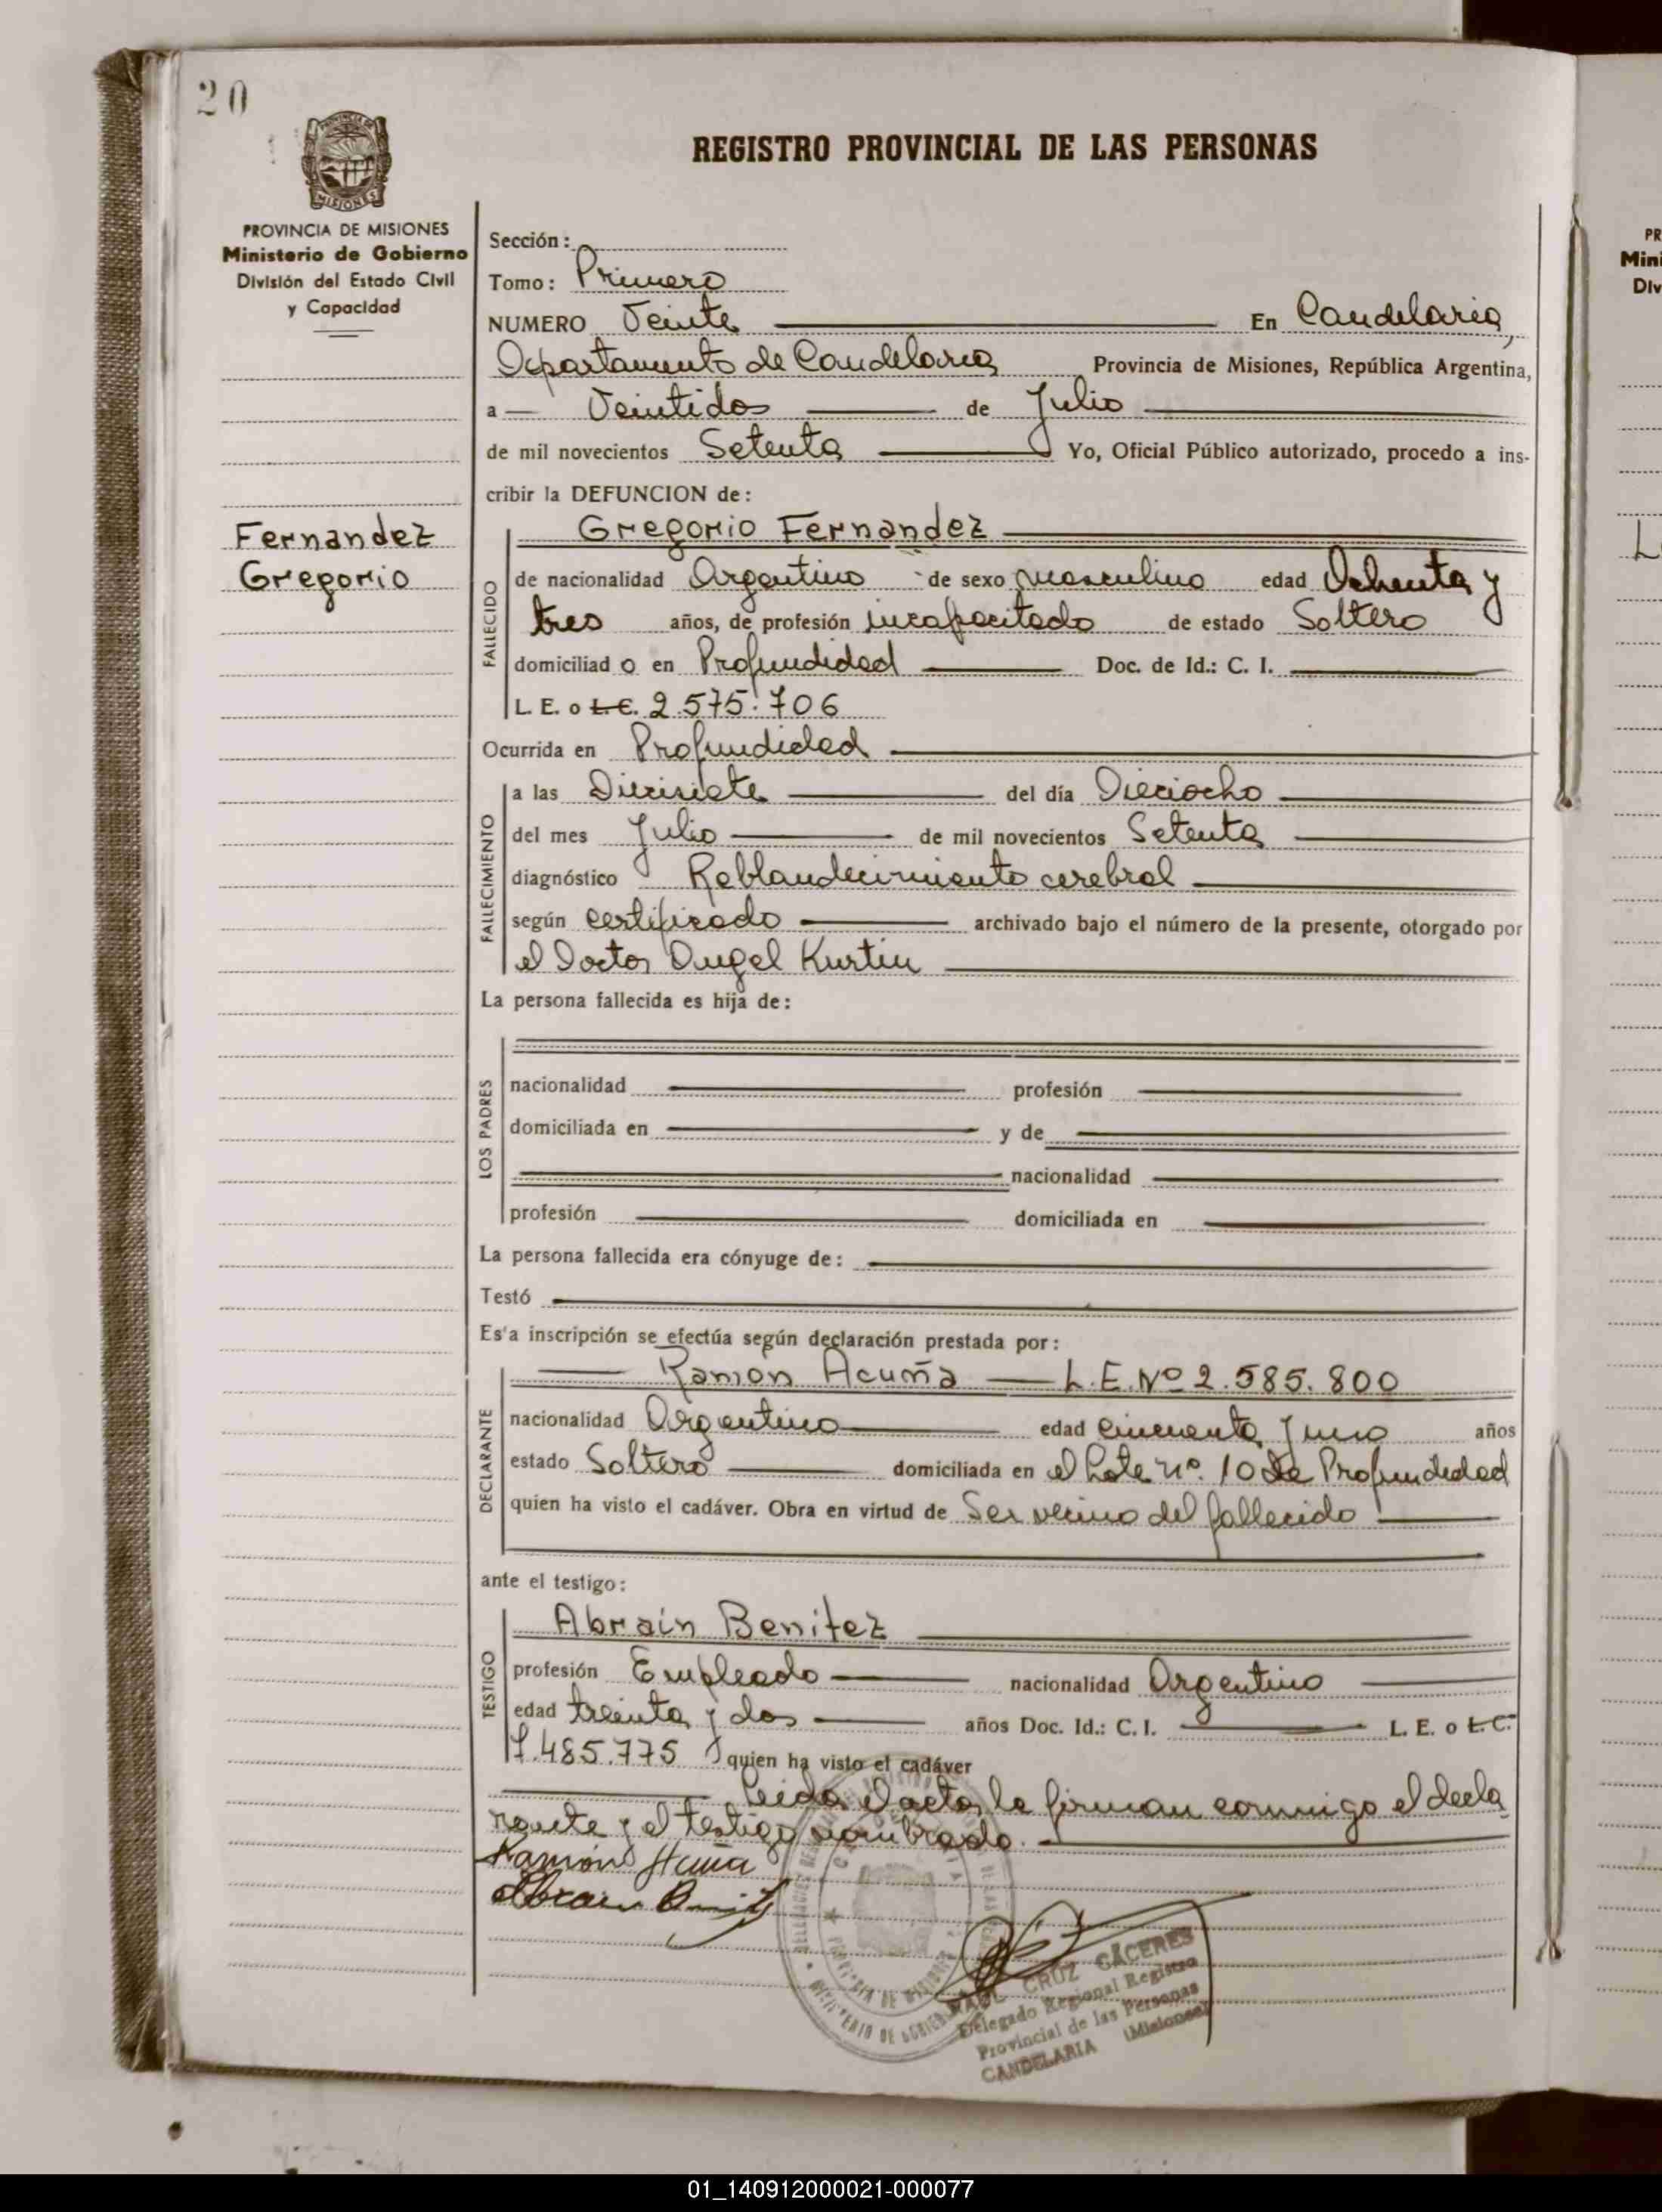 20
PROVINCIA DE
MISIONES
REGISTRO PROVINCIAL DE LAS PERSONAS
PROVINCIA DE MISIONES
Ministerio de Gobierno
División del Estado Civil
y Capacidad
Sección:
Tomo: Primero
NUMERO Veinte En Candelaria,
Departamento de Candelaria Provincia de Misiones, República Argentina,
a Veintidos de Julio
de mil novecientos Setenta Yo, Oficial Público autorizado, procedo a ins-
cribir la DEFUNCION de:
Fernandez
Gregorio
Gregorio Fernandez
FALLECIDO
de nacionalidad Argentino de sexo masculino edad Ochenta y
tres años, de profesión incapacitado de estado Soltero
domiciliad o en Profundidad Doc. de Id.: C. I.
L. E. o L. C. 2.575.706
Ocurrida en Profundidad
FALLECIMIENTO
a las Diecisiete del día Dieciocho
del mes Julio de mil novecientos Setenta
diagnóstico Reblandecimiento cerebral
según certificado archivado bajo el número de la presente, otorgado por
el Doctor Angel Kurtin
La persona fallecida es hija de:
LOS PADRES
nacionalidad profesión
domiciliada en y de
nacionalidad
profesión domiciliada en
La persona fallecida era cónyuge de:
Testó
Es'a inscripción se efectúa según declaración prestada por:
DECLARANTE
Ramón Acuña L.E.Nº 2.585.800
nacionalidad Argentino edad cincuenta y uno años
estado Soltero domiciliada en el Lote nº 10 de Profundidad
quien ha visto el cadáver. Obra en virtud de Ser vecino del fallecido
ante el testigo:
TESTIGO
Abrain Benitez
profesión Empleado nacionalidad Argentino
edad treinta y dos años Doc. Id.: C. I. L. E. o L. C.
7.485.775 quien ha visto el cadáver
Leida el acta, la firman conmigo el decla
rante y el testigo nombrado.
Ramón Acuña
Abrain
RAUL CRUZ CÁCERES
Delegado Regional Registro
Provincial de las Personas
CANDELARIA (Misiones)
PR
Mini
Div
01_140912000021-000077